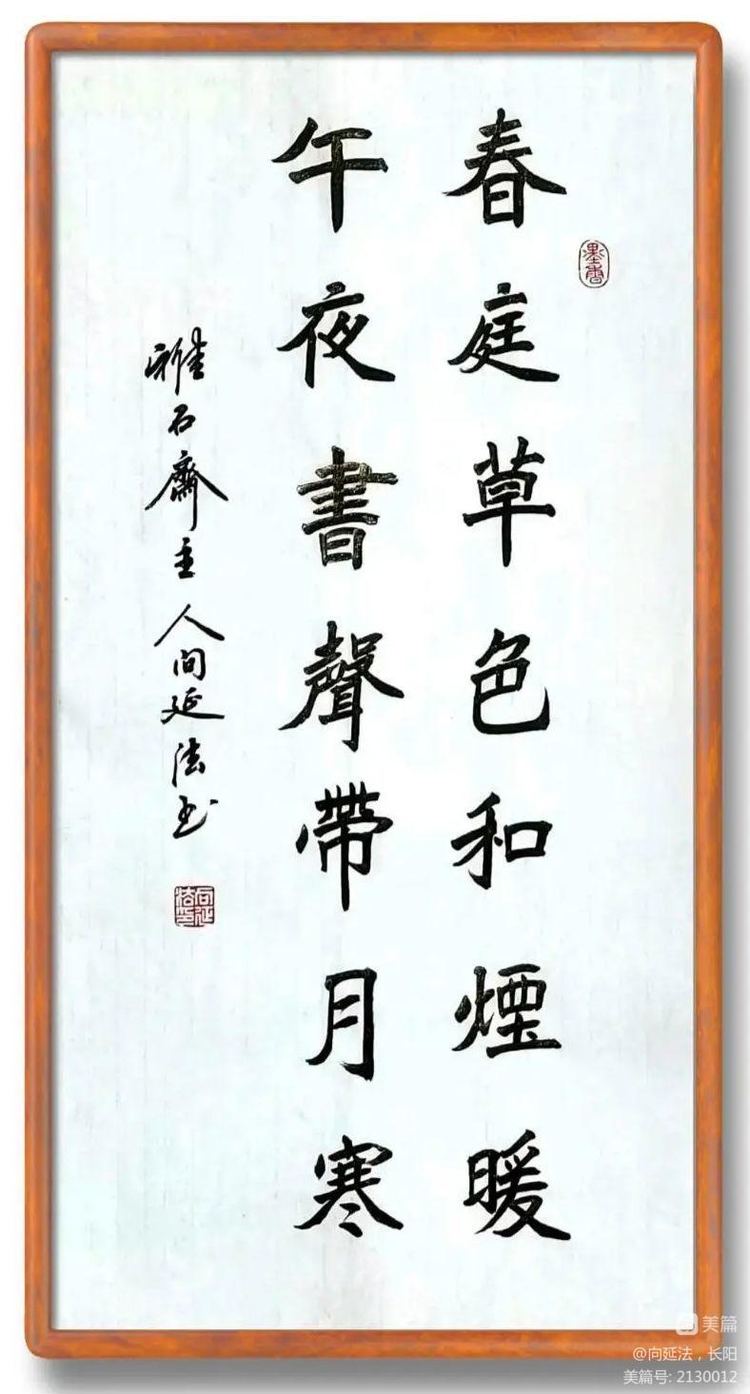 春庭草色和煙暖
午夜書聲帶月寒
雅石齋主人向延法书
墨香
向延法印
美篇
@向延法，长阳
美篇号: 2130012